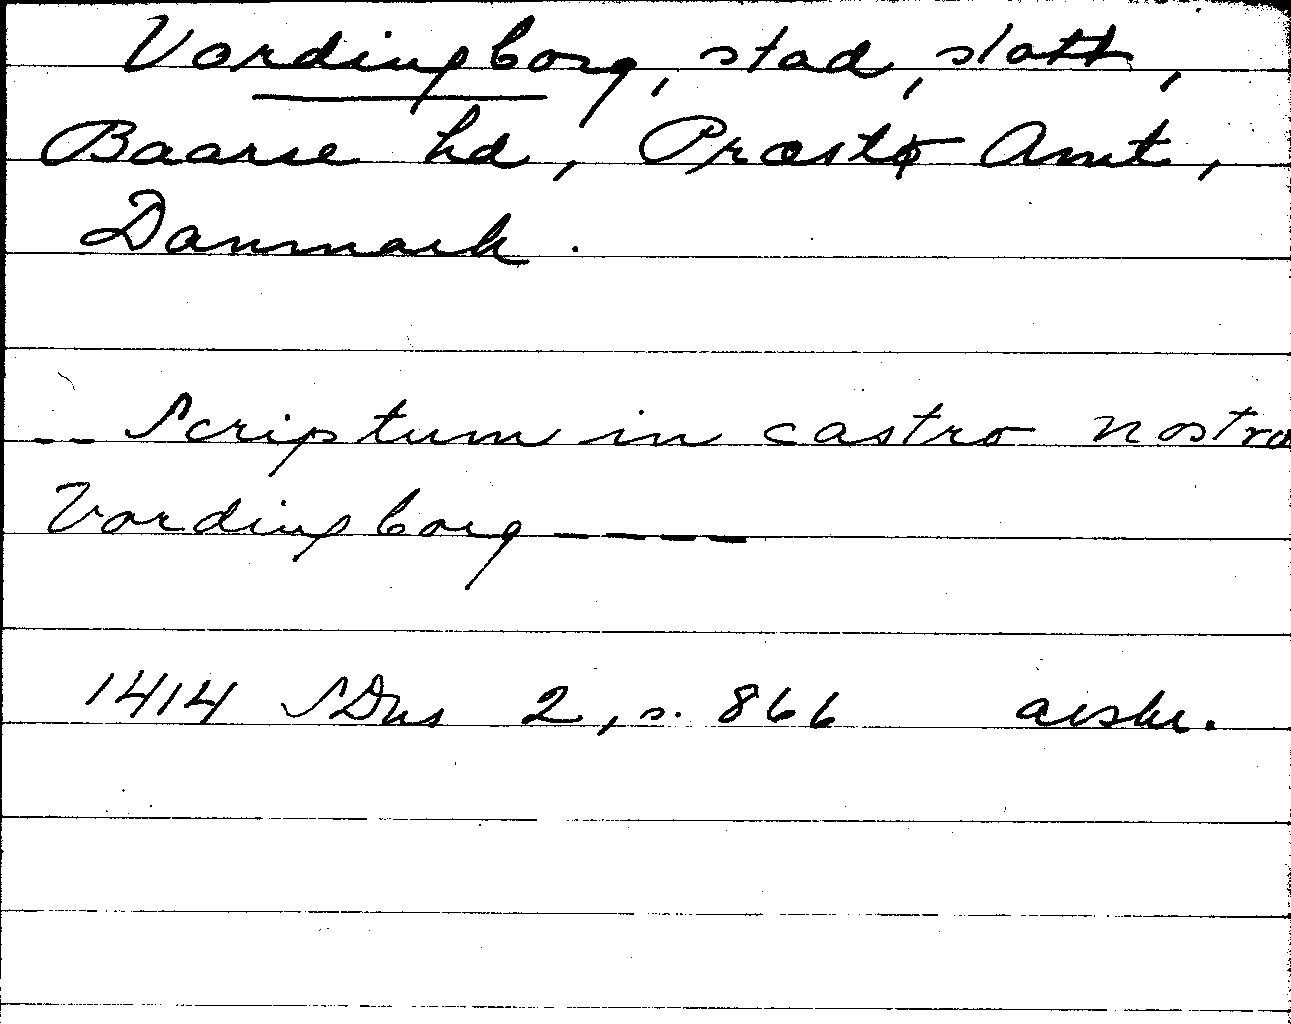 Vordingborg, stad, slott,
Baarse hd, Præstø Amt,
Danmark.
-- Scriptum in castro nostro
Vordingborg ----
1414 SDns 2, s. 866 avskr.